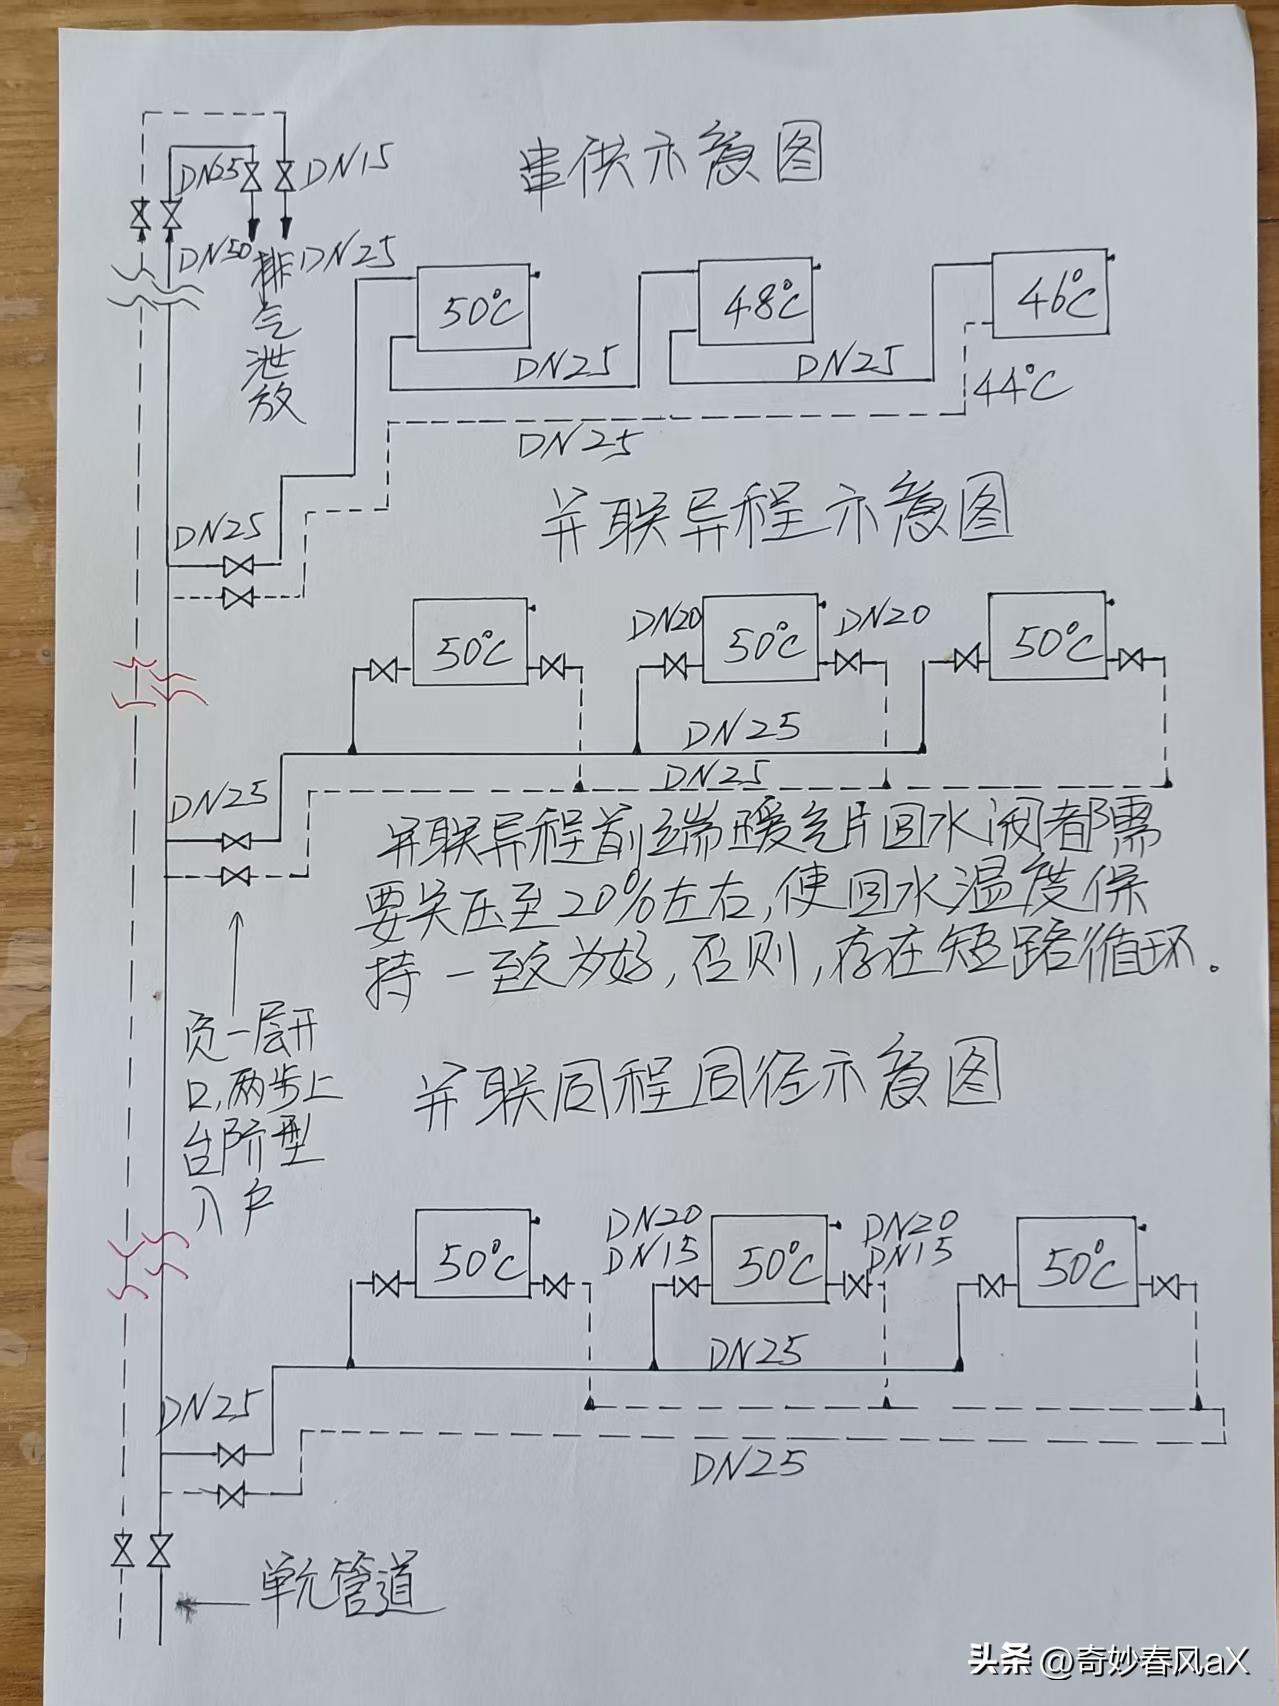 串供示意图
DN25 DN15
DN50 DN25
排气泄放
50°C 48°C 46°C
DN25 DN25
44°C
DN25
DN25
并联异程示意图
DN20 DN20
50°C 50°C 50°C
DN25
DN25
DN25
并联异程前端暖气片回水阀都需
要关压至20%左右,使回水温度保
持一致为好,否则,存在短路循环。
负一层开
口,两步上
台阶型
入户
并联同程同径示意图
DN20 DN20
DN15 DN15
50°C 50°C 50°C
DN25
DN25
DN25
单元管道
头条 @奇妙春风aX